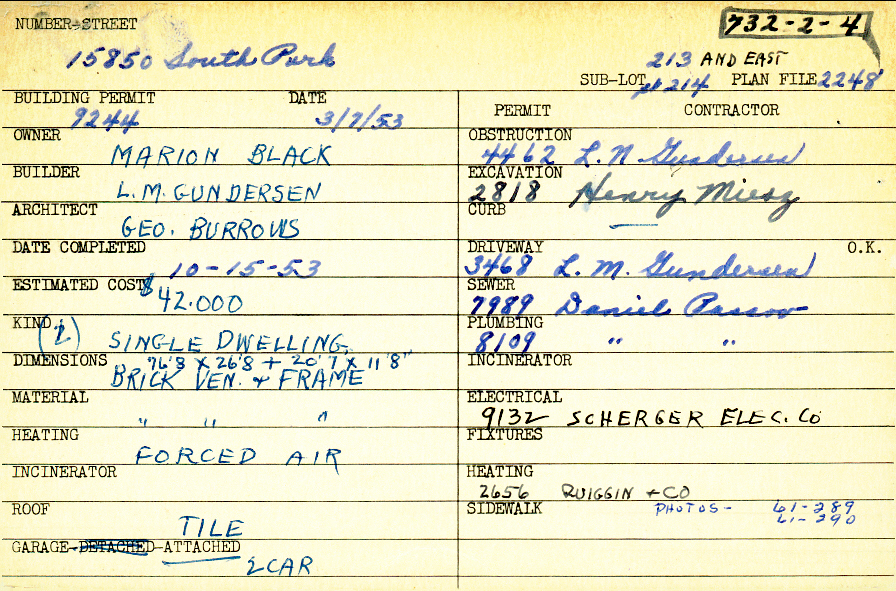 NUMBER-STREET
732-2-4
15850 South Park
213 AND EAST
SUB-LOT pt 214 PLAN FILE 2248
BUILDING PERMIT DATE
9244 3/7/53
PERMIT CONTRACTOR
OWNER
MARION BLACK
BUILDER
L.M. GUNDERSEN
ARCHITECT
GEO. BURROWS
DATE COMPLETED
10-15-53
ESTIMATED COST
$42.000
KIND
(2) SINGLE DWELLING
DIMENSIONS 76'8 X 26'8 + 20'7 X 11'8"
BRICK VEN. + FRAME
MATERIAL
" " "
HEATING
FORCED AIR
INCINERATOR
ROOF
TILE
GARAGE-DETACHED-ATTACHED
2 CAR
OBSTRUCTION
4462 L. N. Gundersen
EXCAVATION
2818 Henry Miesz
CURB
DRIVEWAY O.K.
3468 L. M. Gundersen
SEWER
7989 Daniel
PLUMBING
8109 " "
INCINERATOR
ELECTRICAL
9132 SCHERGER ELEC. Co
FIXTURES
HEATING
2656 QUIGGIN + CO
SIDEWALK PHOTOS- 61-289
61-290